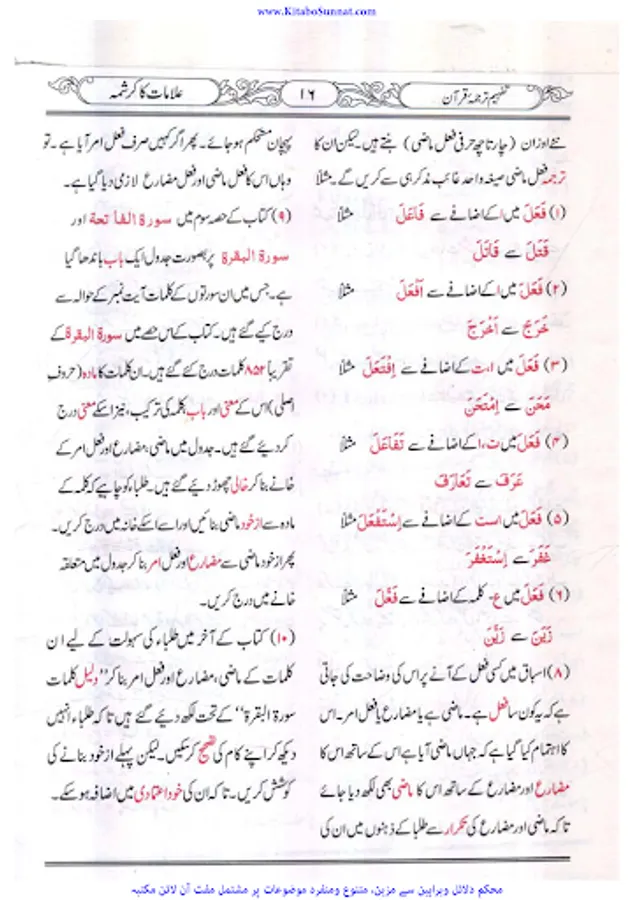 www.KitaboSunnat.com
تفہیم ترجمۂ قرآن
۱۶
علامات کا کرشمہ
نئے اوزان (چار تا چھ حرفی فعل ماضی) بنتے ہیں۔ لیکن ان کا
ترجمہ فعل ماضی صیغہ واحد غائب مذکر ہی سے کریں گے۔ مثلاً
(۱) فَعَلَ میں ا کے اضافے سے فَاعَلَ مثلاً
قَتَلَ سے قَاتَلَ
(۲) فَعَلَ میں ا کے اضافے سے اَفْعَلَ مثلاً
خَرَجَ سے اَخْرَجَ
(۳) فَعَلَ میں ا،ت کے اضافے سے اِفْتَعَلَ مثلاً
مَحَنَ سے اِمْتَحَنَ
(۴) فَعَلَ میں ت،ا کے اضافے سے تَفَاعَلَ مثلاً
عَرَفَ سے تَعَارَفَ
(۵) فَعَلَ میں است کے اضافے سے اِسْتَفْعَلَ مثلاً
غَفَرَ سے اِسْتَغْفَرَ
(۶) فَعَلَ میں ع۔ کلمہ کے اضافے سے فَعَّلَ مثلاً
زَيَنَ سے زَيَّنَ
(۸) اسباق میں کسی فعل کے آنے پر اس کی وضاحت کی جاتی
ہے کہ یہ کون سا فعل ہے۔ ماضی ہے یا مضارع یا فعل امر۔ اس
کا اہتمام کیا گیا ہے کہ جہاں ماضی آیا ہے اس کے ساتھ اس کا
مضارع اور مضارع کے ساتھ اس کا ماضی بھی لکھ دیا جائے
تا کہ ماضی اور مضارع کی تکرار سے طلبا کے ذہنوں میں ان کی
پہچان مستحکم ہو جائے۔ پھر اگر کہیں صرف فعل امر آیا ہے۔ تو
وہاں اس کا فعل ماضی اور فعل مضارع لازمی دیا گیا ہے۔
(۹) کتاب کے حصہ سوم میں سورة الفاتحة اور
سورة البقرة پر بصورت جدول ایک باب باندھا گیا
ہے۔ جس میں ان سورتوں کے کلمات آیت نمبر کے حوالہ سے
درج کیے گئے ہیں۔ کتاب کے اس حصے میں سورة البقرة کے
تقریباً ۸۵۲ کلمات درج کئے گئے ہیں۔ ان کلمات کا مادہ (حروف
اصلی) اس کے معنی اور باب، کلمہ کی ترکیب، نیز اسکے معنی درج
کر دیئے گئے ہیں۔ جدول میں ماضی، مضارع اور فعل امر کے
خانے بنا کر خالی چھوڑ دیئے گئے ہیں۔ طلباء کو چاہیے کہ کلمہ کے
مادہ سے از خود ماضی بنائیں اور اسے اسکے خانہ میں درج کریں۔
پھر از خود ماضی سے مضارع اور فعل امر بنا کر جدول میں متعلقہ
خانے میں درج کریں۔
(۱۰) کتاب کے آخر میں طلباء کی سہولت کے لیے ان
کلمات کے ماضی، مضارع اور فعل امر بنا کر "دلیل کلمات
سورة البقرة" کے تحت لکھ دئیے گئے ہیں تا کہ طلباء انہیں
دیکھ کر اپنے کام کی تصحیح کر سکیں۔ لیکن پہلے از خود بنانے کی
کوشش کریں۔ تا کہ ان کی خود اعتمادی میں اضافہ ہو سکے۔
محکم دلائل وبراہین سے مزین، متنوع ومنفرد موضوعات پر مشتمل مفت آن لائن مکتبہ